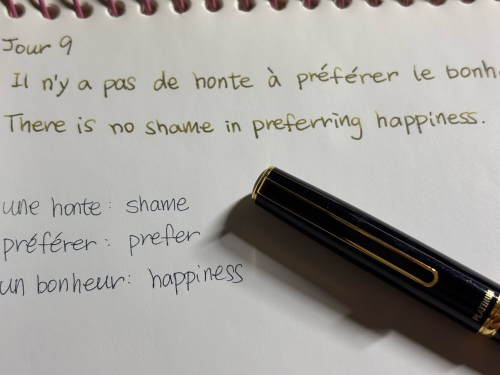 Jour 9
Il n'y a pas de honte à préférer le bonh
There is no shame in preferring happiness.
une honte: shame
préférer: prefer
un bonheur: happiness
PLATINUM